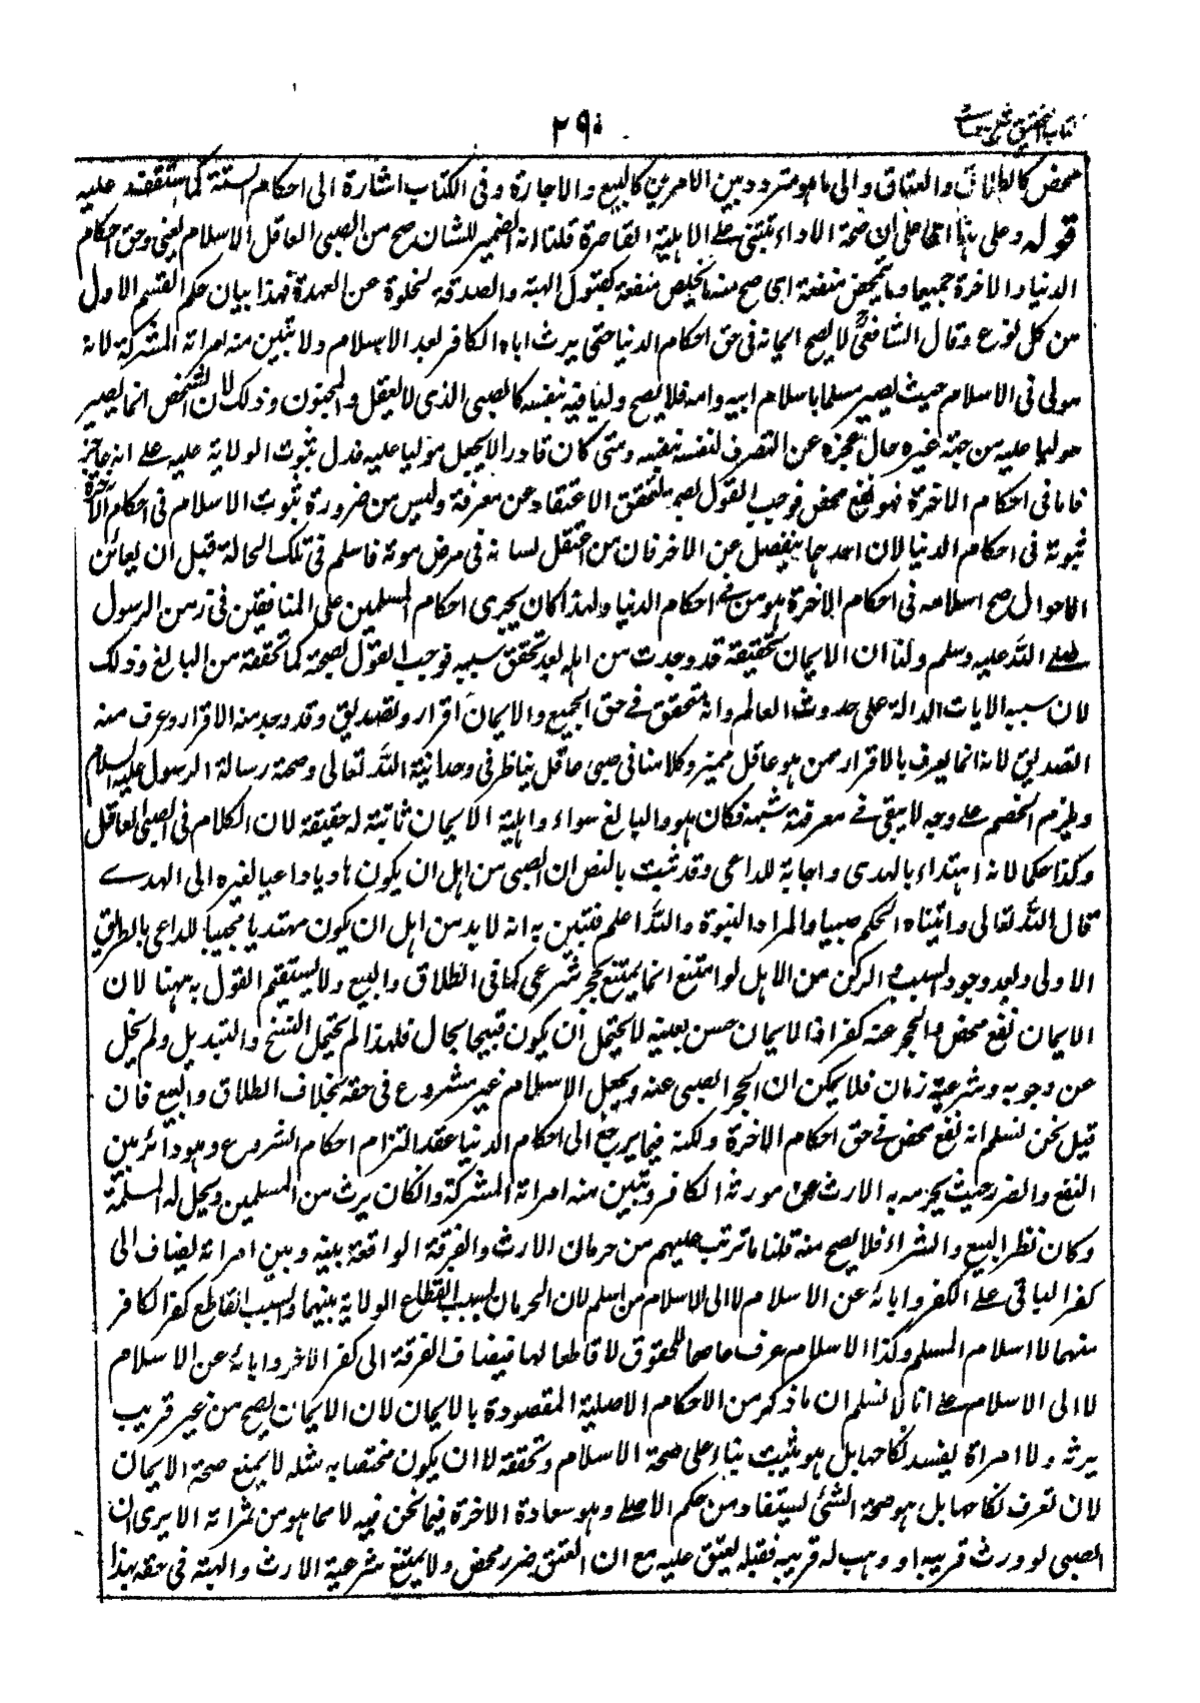 كتاب التحقيق شرح حسامي
٢٩٠
محض كالطلاق والعتاق والى ما هو متردد بين الامرين كالبيع والاجارة وفى الكتاب اشارة الى احكام الستة كما ستقف عليه
قوله وعلى هذا اى على ان صحة الاداء تبتنى على الاهلية القاصرة قلنا انه الضمير للشان صح من الصبى العاقل الاسلام يعنى فى حق احكام
الدنيا والاخرة جميعا وما يتمحض منفعة اى صح منه ما يخلص منفعة كقبول الهبة والصدقة لخلوه عن العهدة فهذا بيان حكم القسم الاول
من كل نوع وقال الشافعى لا يصح ايمانه فى حق احكام الدنيا حتى يرث اباه الكافر بعد الاسلام ولا تبين منه امراته المشركة لانه
مولى فى الاسلام حيث يصير مسلما باسلام ابيه وامه فلا يصح وليا فيه بنفسه كالصبى الذى لا يعقل والمجنون وذلك لان الشخص انما يصير
موليا عليه من جهة غيره حال عجزه عن التصرف لنفسه بنفسه ومتى كان قادرا لا يجعل موليا عليه فدل ثبوت الولاية عليه على انه عاجز
فاما فى احكام الاخرة فهو نفع محض فوجب القول بصحته لتحقق الاعتقاد عن معرفة وليس من ضرورة ثبوت الاسلام فى احكام الآخرة
ثبوته فى احكام الدنيا لان احدهما ينفصل عن الاخر فان من اعتقل لسانه فى مرض موته فاسلم فى تلك الحالة قبل ان يعاين
الاحوال صح اسلامه فى احكام الاخرة هو من فى احكام الدنيا ولهذا كان يجرى احكام المسلمين على المنافقين فى زمن الرسول
صلى الله عليه وسلم ولنا ان الايمان بحقيقته قد وجدت من اهله بعد تحقق سببه فوجب القول بصحته كما تحققه من البالغ وذلك
لان سببه الايات الدالة على حدوث العالم وانه متحقق فى حق الجميع والايمان اقرار وتصديق وقد وجد منه الاقرار وعرف منه
التصديق لانه انما يعرف بالاقرار ممن هو عاقل مميز وكلامنا فى صبى عاقل يناظر فى وحدانية الله تعالى وصحة رسالة الرسول عليه السلام
ويلزم الخصم على وجه لا يبقى فى معرفته شبهة فكان هو والبالغ سواء واهلية الايمان ثابتة له حقيقة لان الكلام فى الصبى العاقل
وكذا حكما لانه اهتداء بالهدى واجابة للداعى وقد ثبت بالنص ان الصبى من اهل ان يكون هاديا داعيا لغيره الى الهدى
قال الله تعالى واتيناه الحكم صبيا والمراد النبوة والله اعلم فتبين به انه لا بد من اهل ان يكون مهتديا مجيبا للداعى بالطريق
الاولى وبعد وجود السبب و الركن من الاهل لو امتنع انما يمتنع بحجر شرعى كما فى الطلاق والبيع ولا يستقيم القول به ههنا لان
الايمان نفع محض والحجر عنه كفر اذ الايمان حسن بعينه لا يحتمل ان يكون قبيحا بحال فلهذا لم يحتمل النسخ والتبديل ولم يخل
عن وجوبه وشرعيته زمان فلا يمكن ان الحجر الصبى عنه ويجعل الاسلام غير مشروع فى حقه بخلاف الطلاق والبيع فان
قيل نحن نسلم انه نفع محض فى حق احكام الاخرة ولكنه فيما يرجع الى احكام الدنيا عقد التزام احكام الشروع وهو دائر بين
النفع والضرر حيث يحرم به الارث عن مورثه الكافر وتبين منه امراته المشركة وان كان يرث من المسلمين ويحل له المسلمة
وكان نظر البيع والشراء فلا يصح منه قلنا ما ترتب عليهم من حرمان الارث والفرقة الواقعة بينه وبين امراته يضاف الى
كفر الباقى على الكفر وابائه عن الاسلام لا الى الاسلام من اسلم لان الحرمان بسبب انقطاع الولاية بينهما والسبب القاطع كفر الكافر
منهما لا اسلام المسلم وكذا الاسلام عرف عاصما للحقوق لا قاطعا لها فيضاف الفرقة الى كفر الاخر وابائه عن الاسلام
لا الى الاسلام على انا لا نسلم ان ما ذكر من الاحكام الاصلية المقصودة بالايمان لان الايمان يصح من غير قريب
يرثه ولا امراة يفسد نكاحها بل هو يثبت بناء على صحة الاسلام وتحققه لا ان يكون مختصا به مثله لا يمنع صحة الايمان
لان تعرف نكاحها بل هو صحة الشئ يستفاد من حكم الاصلى وهو سعادة الاخرة فيما نحن فيه لا مما هو من ثمراته الا يرى ان
الصبى لو ورث قريبه او وهب له قريبه فقبله يعتق عليه مع ان العتق ضرر محض ولا يمتنع شرعية الارث والهبة فى حقه بهذا